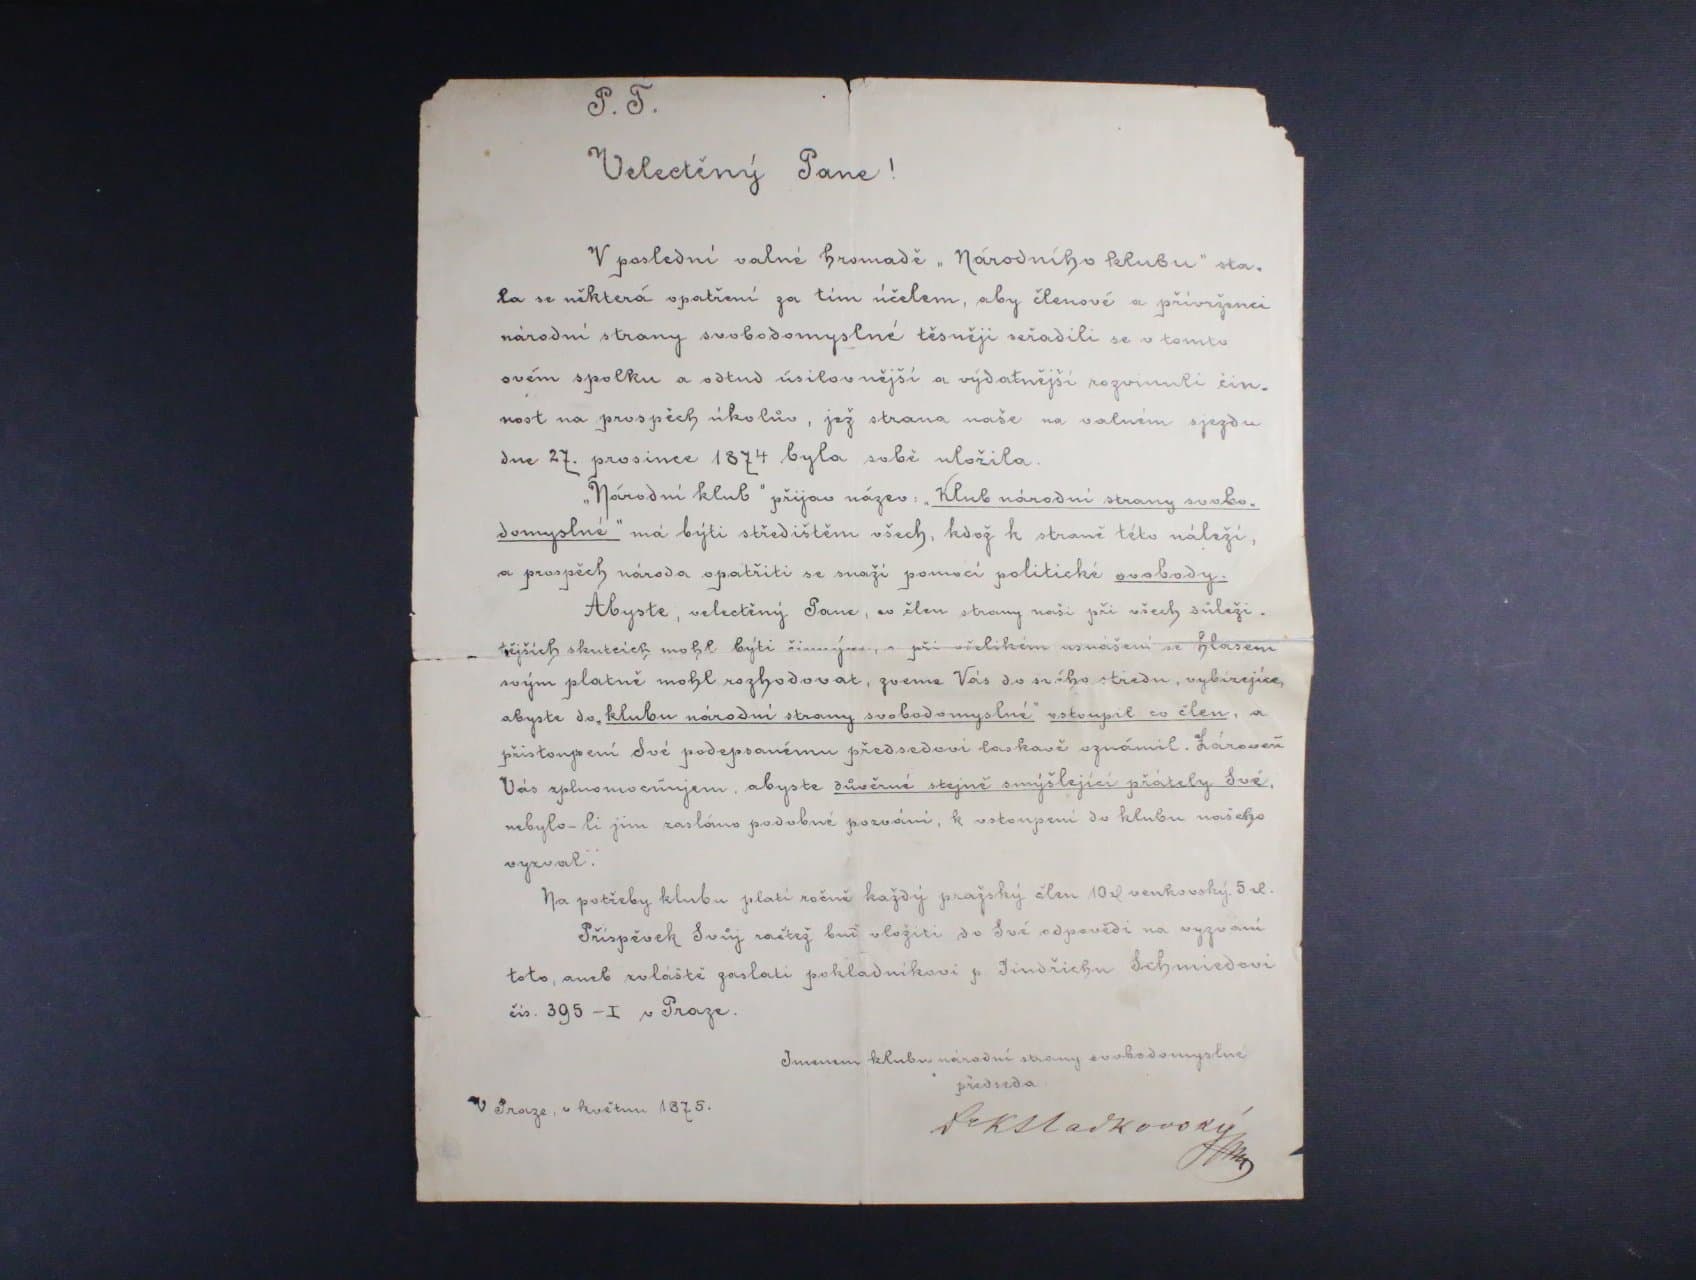 P. T.
Velectěný Pane!
V poslední valné hromadě „Národního klubu" sta-
la se některá opatření za tím účelem, aby členové a přívrženci
národní strany svobodomyslné těsněji seřadili se v tomto
ovém spolku a odtud úsilovnější a výdatnější rozvinuli čin-
nost na prospěch úkolův, jež strana naše na valném sjezdu
dne 27. prosince 1874 byla sobě uložila.
„Národní klub" přijav název: „Klub národní strany svobo-
domyslné" má býti středištěm všech, kdož k straně této náleží,
a prospěch národa opatřiti se snaží pomocí politické svobody.
Abyste, velectěný Pane, co člen strany naší při všech důleži-
tějších skutcích mohl býti činným, a při všelikém usnášení se hlasem
svým platně mohl rozhodovat, zveme Vás do svého středu, vybízejíce,
abyste do „klubu národní strany svobodomyslné" vstoupil co člen, a
přistoupení Své podepsanému předsedovi laskavě oznámil. Zároveň
Vás zplnomocňujem, abyste důvěrné stejně smýšlející přátely Své,
nebylo-li jim zasláno podobné pozvání, k vstoupení do klubu našeho
vyzval.
Na potřeby klubu platí ročně každý pražský člen 10 zl venkovský 5 zl.
Příspěvek Svůj račtež buď vložiti do Své odpovědi na vyzvání
toto, aneb zvláště zaslati pokladníkovi p. Jindřichu Schmiedovi
čís. 395-I v Praze.
Jmenem klubu národní strany svobodomyslné
předseda
V Praze, v květnu 1875.
Dr K Sladkovský